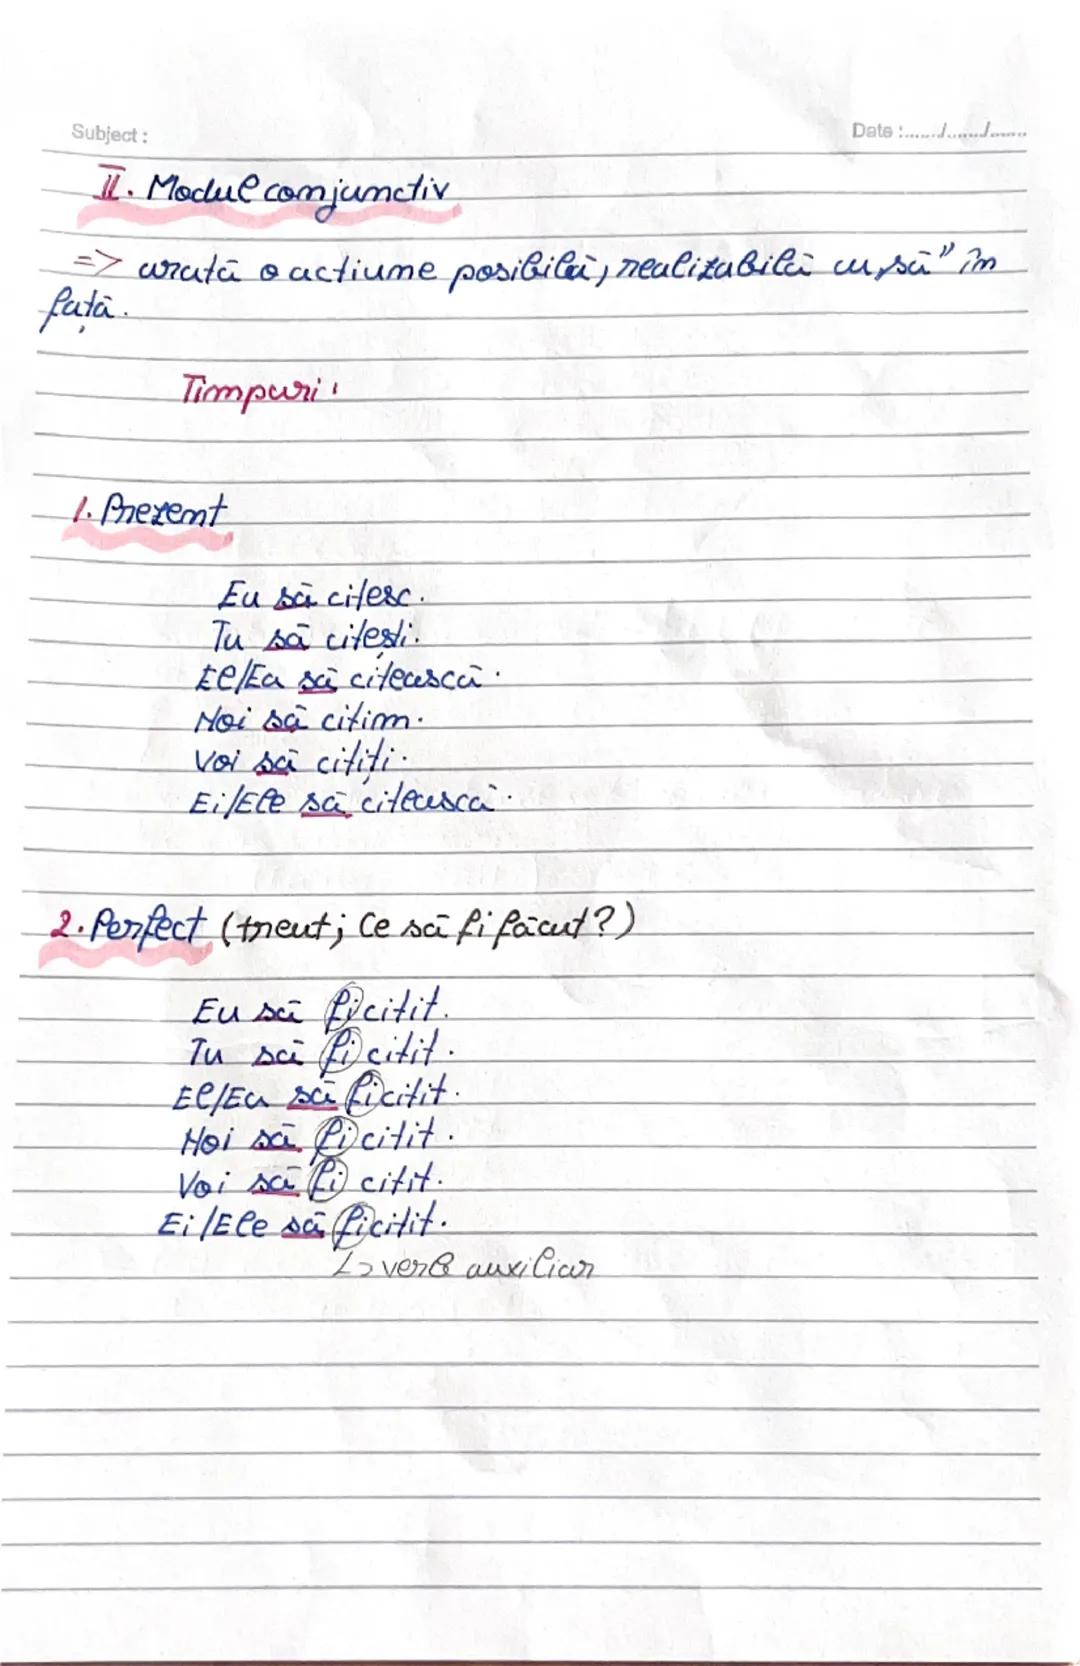 Subject :
Date :....../....../......
II. Modul conjunctiv
=> arată o acțiune posibilă, realizabilă cu „să” în
față.
Timpuri:
1. Prezent
Eu să citesc.
Tu să citești.
El/Ea să citească.
Noi să citim.
Voi să citiți.
Ei/Ele să citească.
2. Perfect (trecut; Ce să fi făcut?)
Eu să fi citit.
Tu să fi citit.
El/Ea să fi citit.
Noi să fi citit.
Voi să fi citit.
Ei/Ele să fi citit.
↳ verb auxiliar